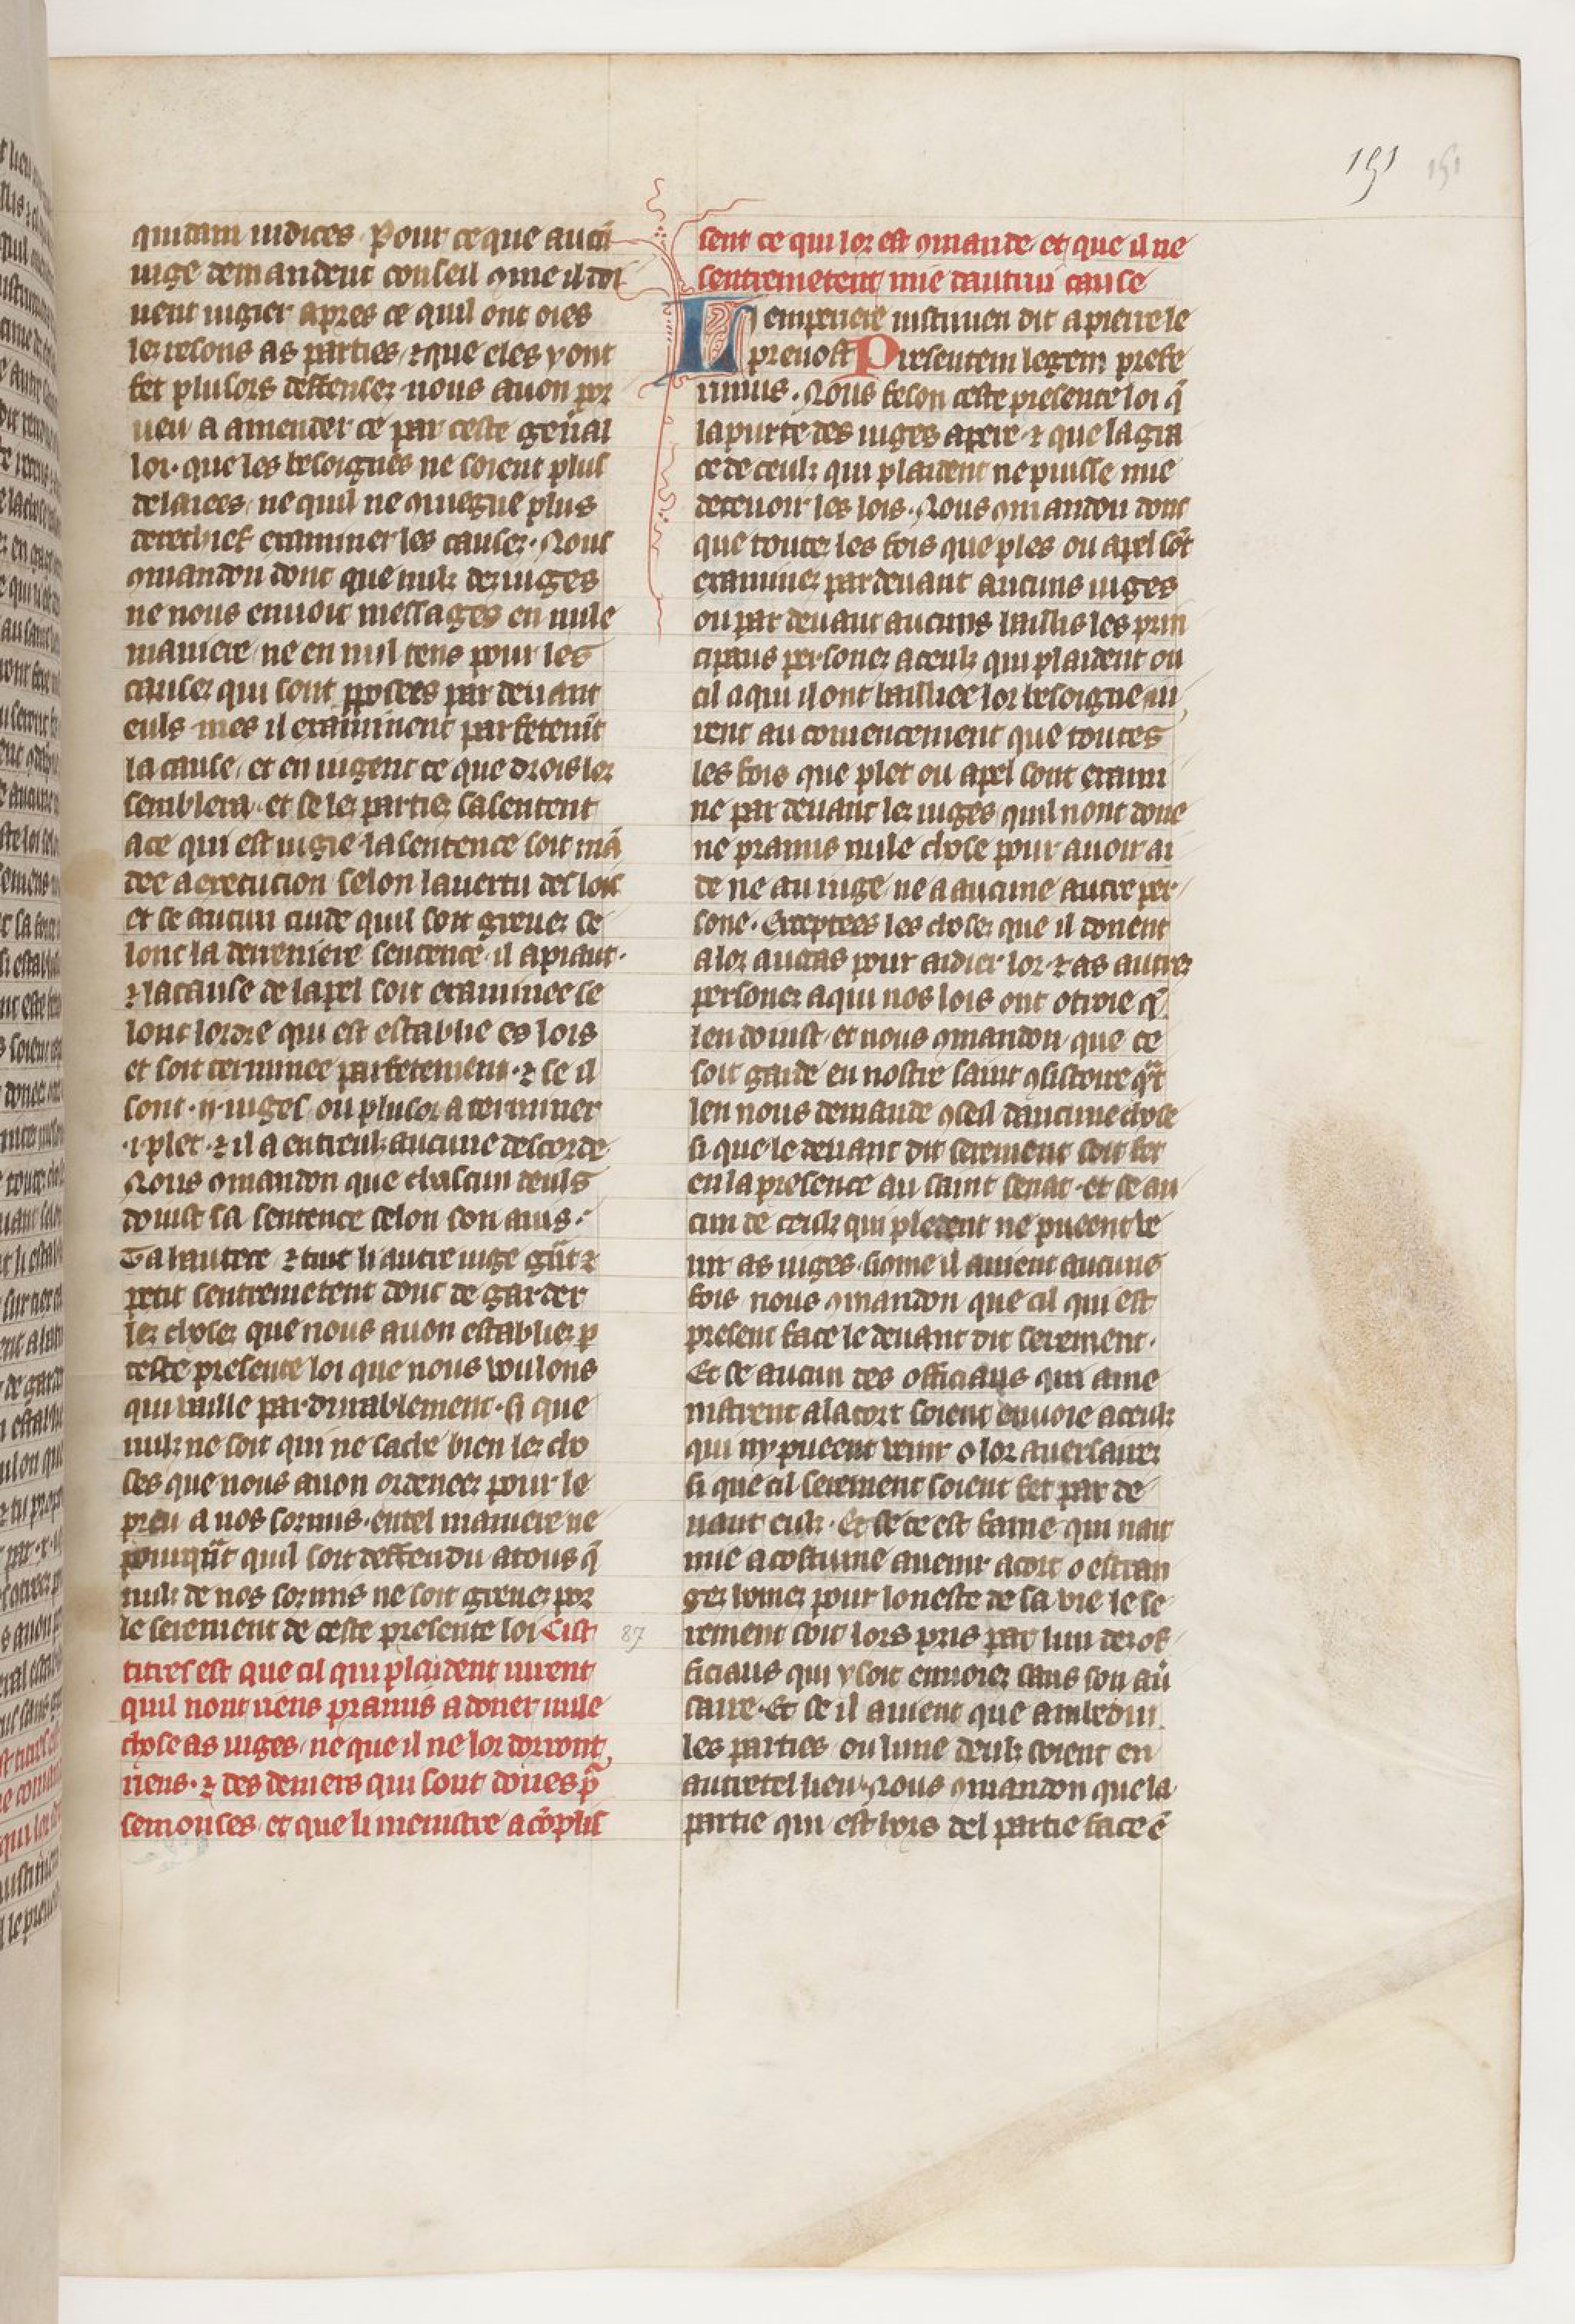 151 151
quidam iudices Pour ce que aucũ
iuge demandent conseil ɔme il doi
uent iugier apres ce quil ont oies
lez resons as parties, ⁊ que eles y ont
fet plusors deffensez nous auon por
ueu a amender ce par ceste geñal
loi. que les besoignes ne soient plus
delaiees, ne quil ne ɔuiegne plus
derechief examiner les causez. Nous
ɔmandon donc que nulz dez iuges
ne nous enuoit messages en nule
maniere, ne en nul tens pour les
causez qui sont ꝓposees par deuant
euls mes il examinent parfetemt̃
la cause, et en iugent ce que drois lor
semblera. et se lez partiez sasentent
a ce qui est iugie la sentence soit mã
dee a execucion selon la uertu des lois
et se aucun cuide quil soit greuez se
lonc la derreniere sentence il apiaut.
⁊ la cause de lapel soit examinee se
lonc lordre qui est establie es lois
et soit terminee parfetement. ⁊ se il
sont .ii. iuges ou plusor a terminer
.i. plet. ⁊ il a entreulz aucune descorde
Nous ɔmandon que chascun deuls
doinst sa sentence selon son auis.
Ta hautece ⁊ tuit li autre iuge gñt ⁊
petit sentremetent donc de garder
lez chosez que nous auon establiez ꝑ
ceste presente loi que nous uoulons
qui uaille pardurablement. si que
nulz ne soit qui ne sache bien lez cho
ses que nous auon ordenez pour le
preu a nos sozmis. en tel maniere ne
pourqñt quil soit deffendu a tous q̃
nulz de nos sozmis ne soit greuez por
le serement de ceste presente loi Cist
titres est que cil qui plaident iurent
quil nont riens pramis a doner nule
chose as iuges, ne que il ne lor dorront
riens. ⁊ des deniers qui sont dones pͬ
semonses, et que li menistre acõplis
87
sent ce qui lor est ɔmande et que il ne
sentremetent mie dautrui cause
Li emperiere iustinien dit a pierre le
preuost Presentem legem prefe
rimus. Nous feson ceste presente loi q̃
la purte des iuges apere ⁊ que la gra
ce de ceulz qui plaident ne puisse mie
deceuoir les lois. Nous ɔmandon donc
que toutez les fois que ples ou apel sõt
examinez par deuant aucuns iuges
ou par deuant aucuns baillis les prin
cipaus personez a ceulz qui plaident ou
cil a qui il ont bailliee lor besoigne iu
rent au comencement que toutes
les fois que plet ou apel sont exami
ne par deuant lez iuges quil nont done
ne pramis nule chose pour auoir ai
de ne au iuge ne a aucune autre per
sone. Exceptees les chosez que il donent
a loz aucas pour aidier lor. ⁊ as autrez
personez a qui nos lois ont otroie q̃
len doinst, et nous ɔmandon que ce
soit garde en nostre saint ɔsistoire qñt
len nous demande ɔseil daucune chose
si que le deuant dit serement soit fet
en la presence au saint senat. et se au
cun de ceulz qui pledent ne pueent ve
nir as iuges, si ɔme il auient aucune
fois nous ɔmandon que cil qui est
present face le deuant dit serement.
Et se aucun des officiaus qui ame
nistrent a la cort soient enuoie a ceulz
qui ny pueent venir o lor auersairez
si que cil serement soient fet par de
uant eulz. Et se ce est fame qui nait
mie acostume auenir a cort o estran
gez homez pour loneste de sa vie le se
rement soit lors pris par lun dez of
ficiaus qui y soit enuoiez sans son aũ
saire. Et se il auient que ambedui
les parties, ou lune deulz soient en
autretel lieu. Nous ɔmandon que la
partie qui est hors del partie face ẽ